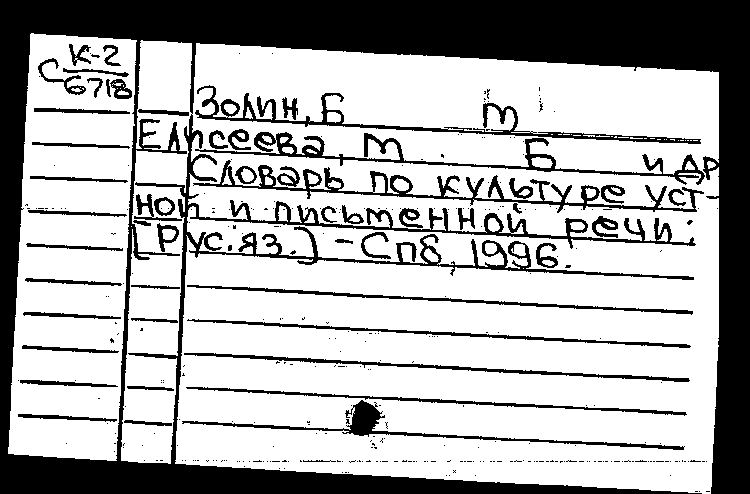 С К-2
6718
Золин, Б т
Елисеева, т. Б и др
Словарь по культуре уст-
ной и письменной речи:
[Рус.яз.] - Спб, 1996.